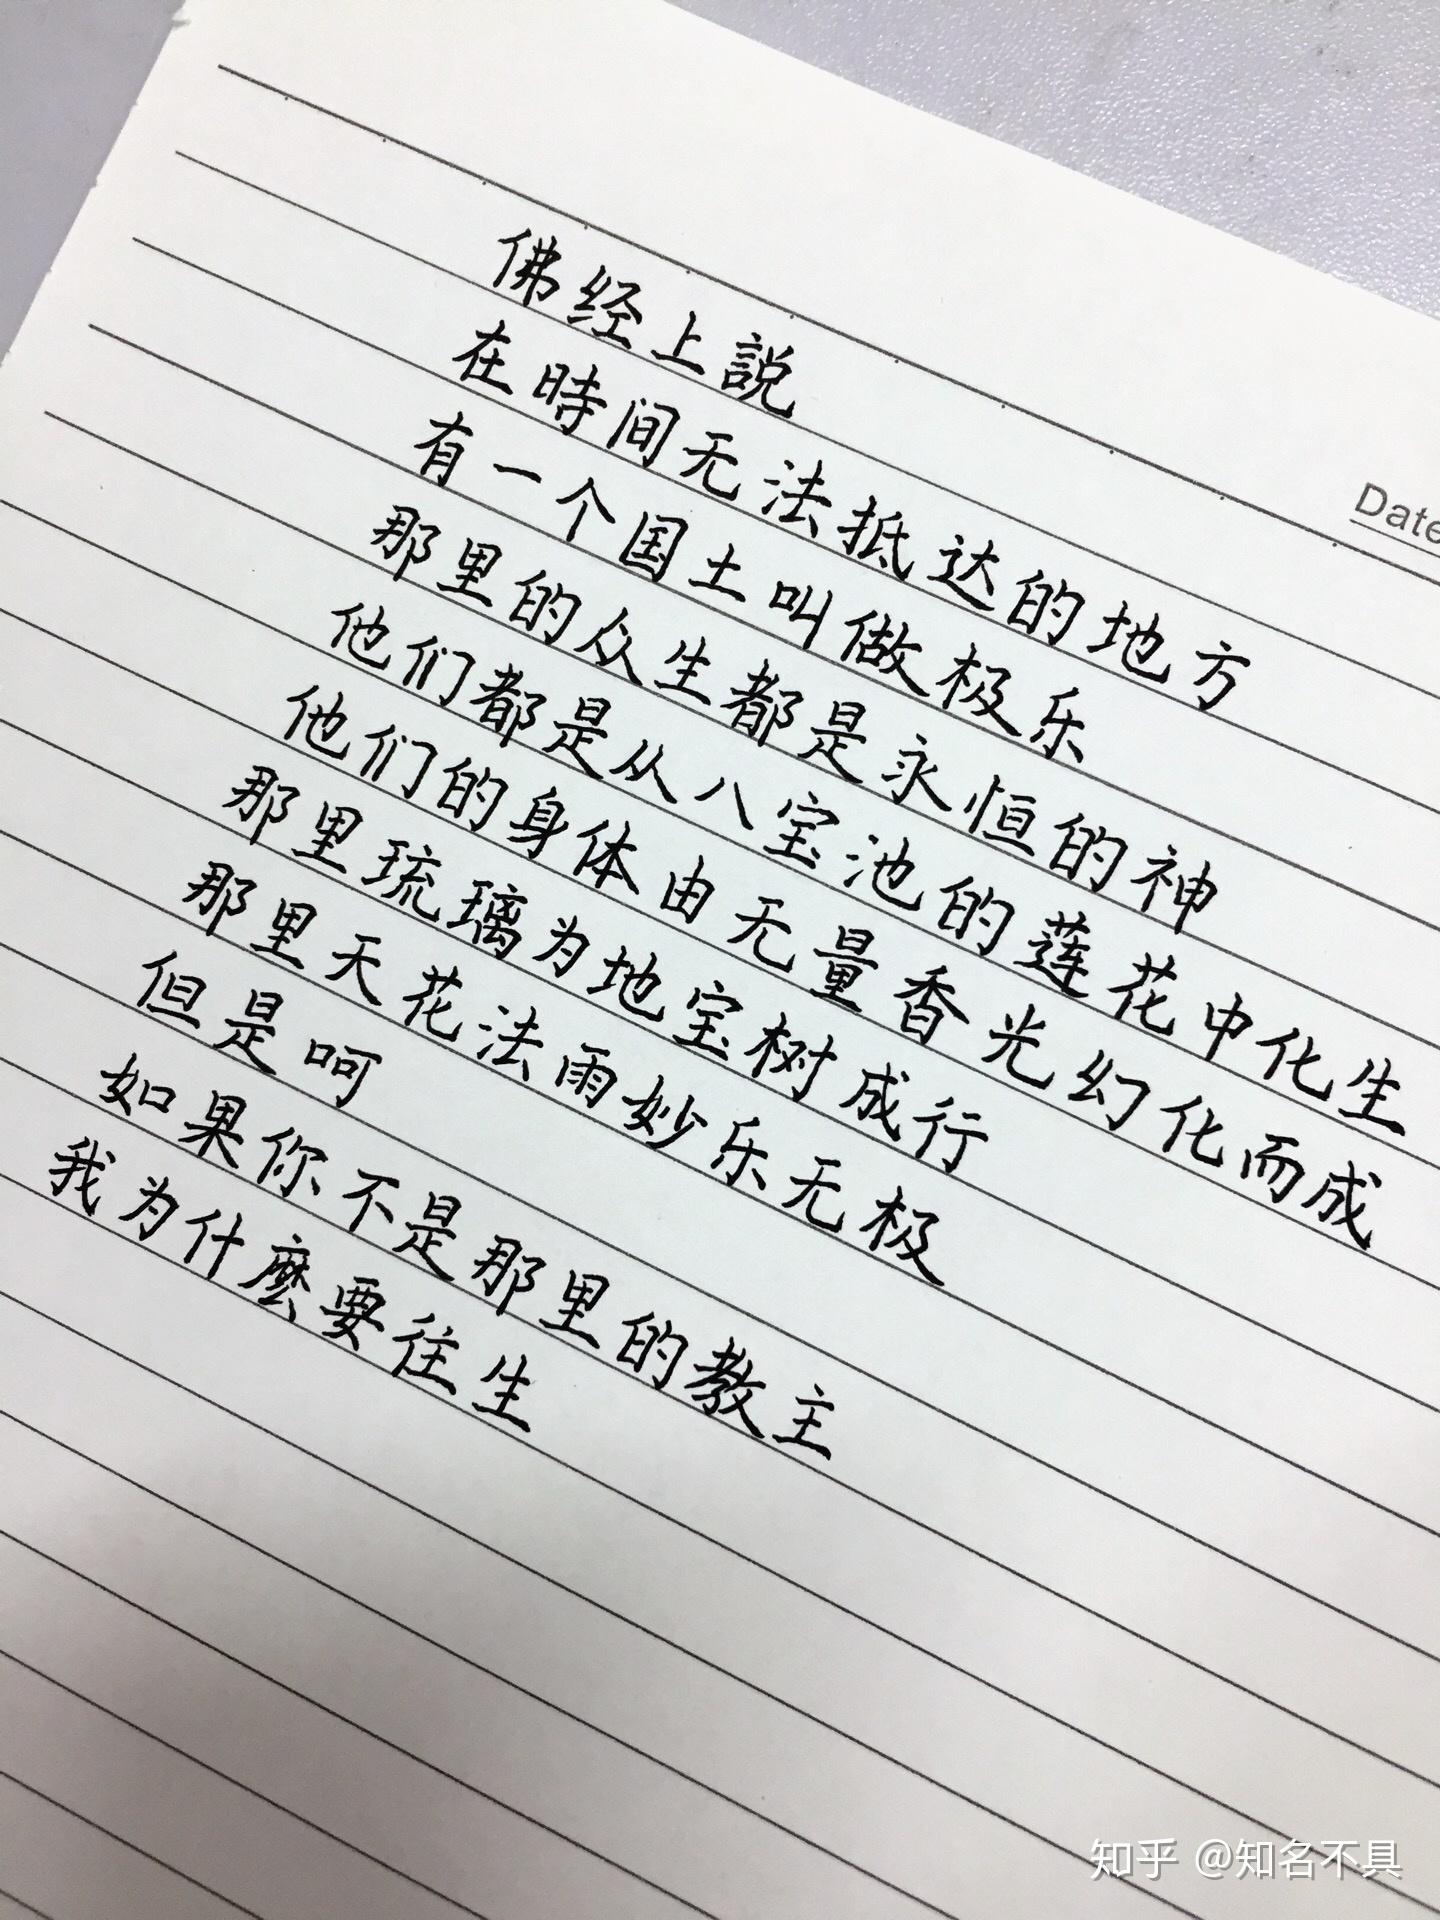 Date
佛经上説
在時间无法抵达的地方
有一个国土叫做极乐
那里的众生都是永恒的神
他们都是从八宝池的莲花中化生
他们的身体由无量香光幻化而成
那里琉璃为地宝树成行
那里天花法雨妙乐无极
但是呵
如果你不是那里的教主
我为什麽要往生
知乎 @知名不具